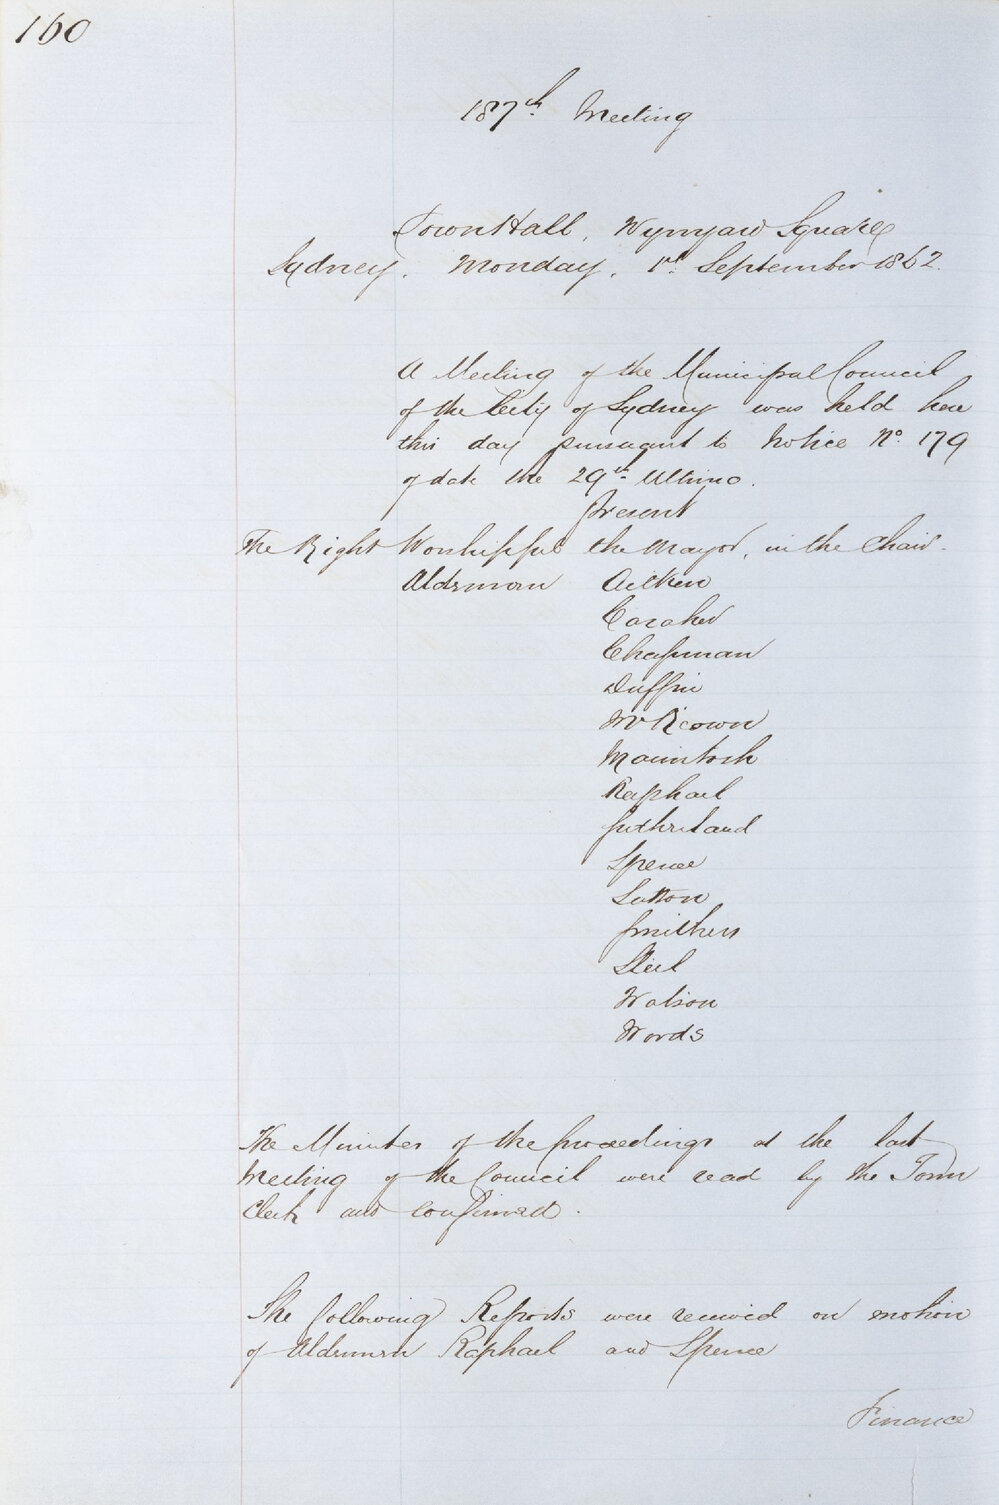 160
187th Meeting
Town Hall, Wynyard Square
Sydney, Monday, 1st September 1862.
A Meeting of the Municipal Council
of the City of Sydney was held here
this day pursuant to Notice No. 179
of date the 29th Ultimo.
Present
The Right Worshipful the Mayor, in the Chair.
Aldermen Aitken
Caraher
Chapman
Duffin
McKeown
Macintosh
Raphael
Sutherland
Spence
Sutton
Smithers
Steel
Watson
Woods
The Minutes of the proceedings at the last
Meeting of the Council were read by the Town
Clerk and confirmed.
The following Reports were received on motion
of Aldermen Raphael and Spence
Finance